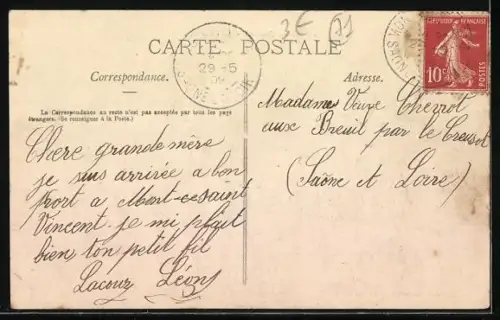 3€
CARTE POSTALE
29-5
Correspondance.
Adresse.
La Correspondance au recto n'est pas acceptée par tous les pays
étrangers. (Se renseigner à la Poste.)
10c
POSTES
Madame Veuve Chevrot
aux Breuil par le Creusot
(Saône et Loire)
Chere grande mère
je suis arrivée a bon
port a Mont-ce-saint
Vincent je mi plait
bien ton petit fil
Lacour Léon